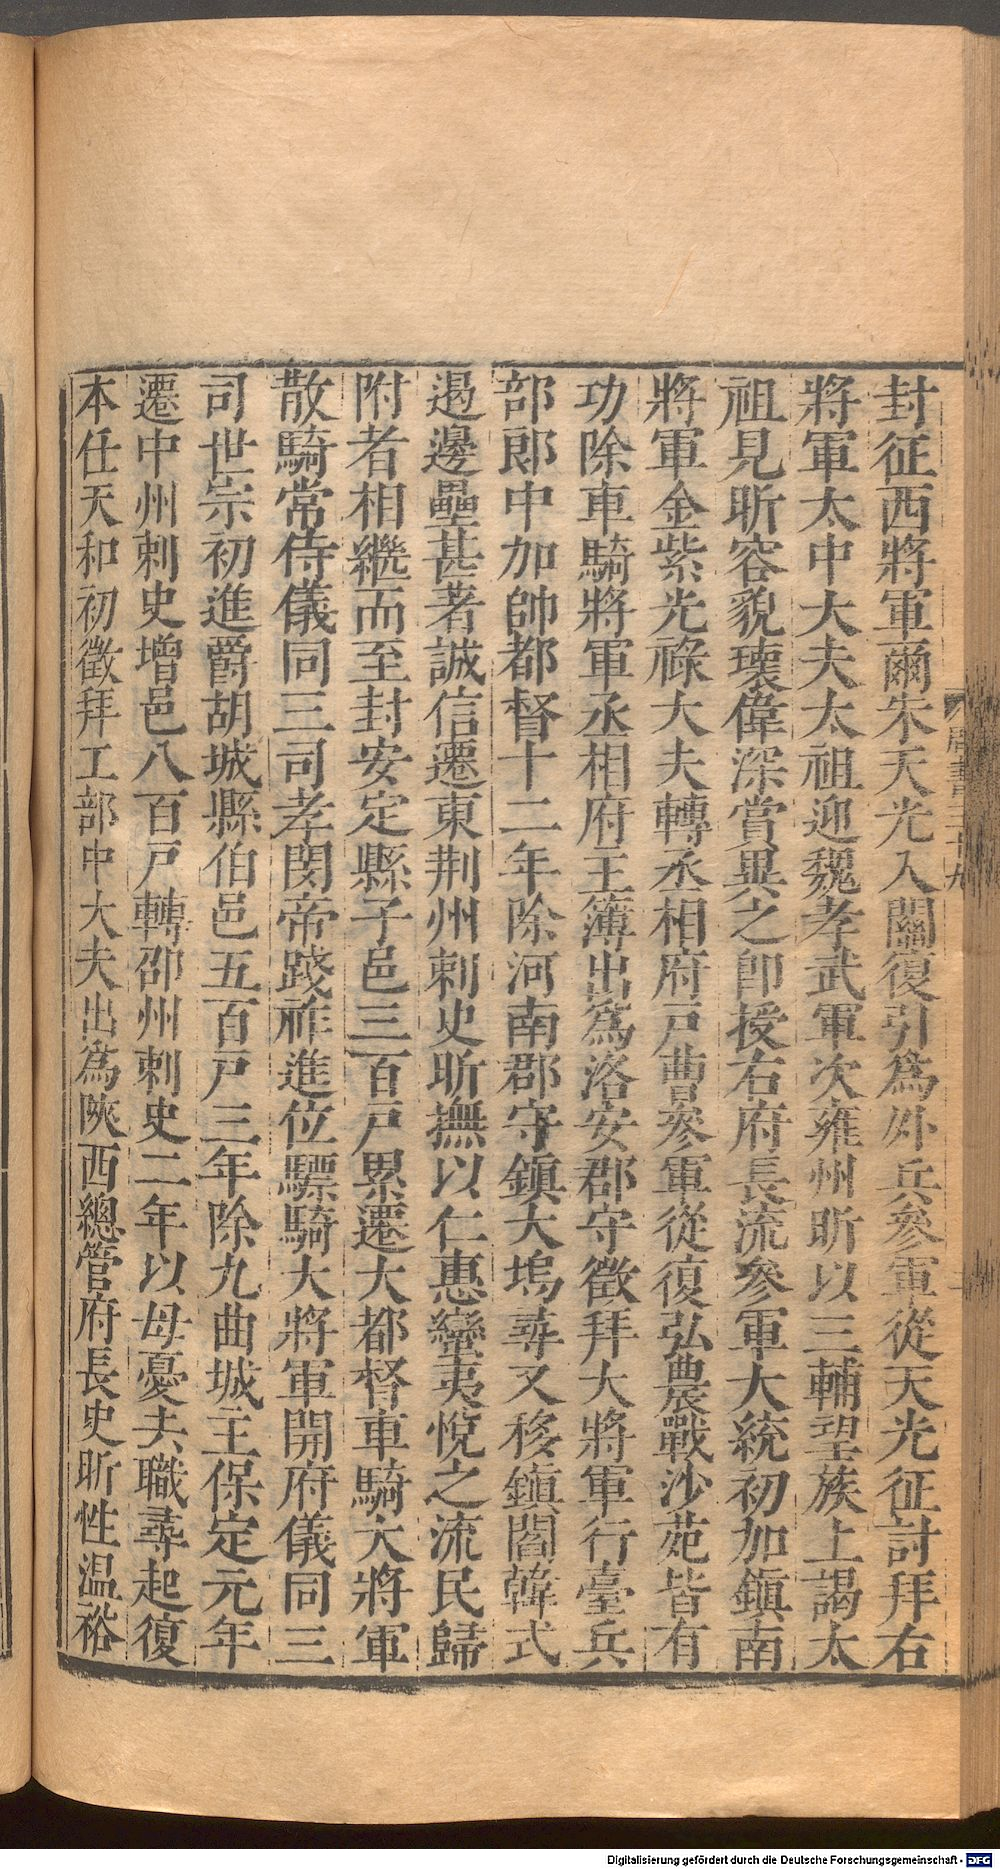 封征西將軍爾朱天光入關復引爲外兵參軍從天光征討拜右
將軍太中大夫太祖迎魏孝武軍次雍州昕以三輔望族上謁太
祖見昕容貌瓌偉深賞異之卽授右府長流參軍大統初加鎭南
將軍金紫光祿大夫轉丞相府戸曹參軍從復弘農戰沙苑皆有
功除車騎將軍丞相府主簿出爲洛安郡守徵拜大將軍行臺兵
部郎中加帥都督十二年除河南郡守鎭大塢尋又移鎭閻韓式
遏邊壘甚著誠信遷東荆州刺史昕撫以仁惠蠻夷悅之流民歸
附者相繼而至封安定縣子邑三百戸累遷大都督車騎大將軍
散騎常侍儀同三司孝閔帝踐祚進位驃騎大將軍開府儀同三
司世宗初進爵胡城縣伯邑五百戸三年除九曲城主保定元年
遷中州刺史增邑八百戸轉邵州刺史二年以母憂去職尋起復
本任天和初徵拜工部中大夫出爲陝西總管府長史昕性温裕
周書三十九
Digitalisierung gefördert durch die Deutsche Forschungsgemeinschaft - DFG